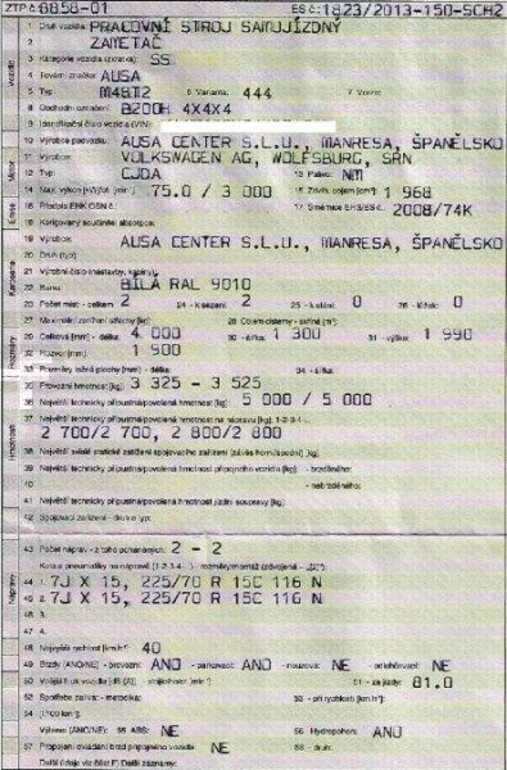 ZTP č. 8858-01 ES č.: 1823/2013-150-SCH2
1 Druh vozidla: PRACOVNÍ STROJ SAMOJÍZDNÝ
2 ZAMETAČ
3 Kategorie vozidla (zkratka): SS
4 Tovární značka: AUSA
5 Typ: M4812 6 Varianta: 444 7 Verze:
8 Obchodní označení: B200H 4X4X4
9 Identifikační číslo vozidla (VIN):
10 Výrobce podvozku: AUSA CENTER S.L.U., MANRESA, ŠPANĚLSKO
11 Výrobce: VOLKSWAGEN AG, WOLFSBURG, SRN
12 Typ: CJDA 13 Palivo: NM
14 Max. výkon [kW]/ot. [min⁻¹]: 75.0 / 3 000 15 Zdvih. objem [cm³]: 1 968
16 Předpis EHK OSN č.: 17 Směrnice EHS/ES č.: 2008/74K
18 Korigovaný součinitel absorpce:
19 Výrobce: AUSA CENTER S.L.U., MANRESA, ŠPANĚLSKO
20 Druh (typ):
21 Výrobní číslo (nástavby, kabiny):
22 Barva: BÍLÁ RAL 9010
23 Počet míst: - celkem 2 24 - k sezení: 2 25 - k stání: 0 26 - lůžek: 0
27 Maximální zatížení střechy [kg]: 28 Objem cisterny - skříně [m³]:
29 Celková [mm]: - délka: 4 000 30 - šířka: 1 300 31 - výška: 1 990
32 Rozvor [mm]: 1 900
33 Rozměry ložné plochy [mm] - délka: 34 - šířka:
35 Provozní hmotnost [kg]: 3 325 - 3 525
36 Největší technicky přípustná/povolená hmotnost [kg]: 5 000 / 5 000
37 Největší technicky přípustná/povolená hmotnost na nápravu [kg]: 1-2-3-4-...
2 700/2 700, 2 800/2 800
38 Největší svislé statické zatížení spojovacího zařízení (závěs horní/spodní) [kg]:
39 Největší technicky přípustná/povolená hmotnost přípojného vozidla [kg]: - brzděného:
40 - nebrzděného:
41 Největší technicky přípustná/povolená hmotnost jízdní soupravy [kg]:
42 Spojovací zařízení - druh a typ:
43 Počet náprav - z toho poháněných: 2 - 2
Kola a pneumatiky na nápravě (1-2-3-4-..) - rozměry/montáž
44 1. 7J X 15, 225/70 R 15C 116 N
45 2. 7J X 15, 225/70 R 15C 116 N
46 3.
47 4.
48 Nejvyšší rychlost [km.h⁻¹]: 40
49 Brzdy (ANO/NE) - provozní: ANO - parkovací: ANO - nouzová: NE - odlehčovací: NE
50 Vnější hluk vozidla [dB (A)]: 51 - za jízdy: 81.0
52 Spotřeba paliva: - metodika: 53 - při rychlosti [km.h⁻¹]:
54 [l.100 km⁻¹]:
Výbava (ANO/NE): 55 ABS: NE 56 Hydropohon: ANO
57 Propojení ovládání brzd přípojného vozidla: NE 58 - druh:
Další údaje viz část F) Další záznamy: